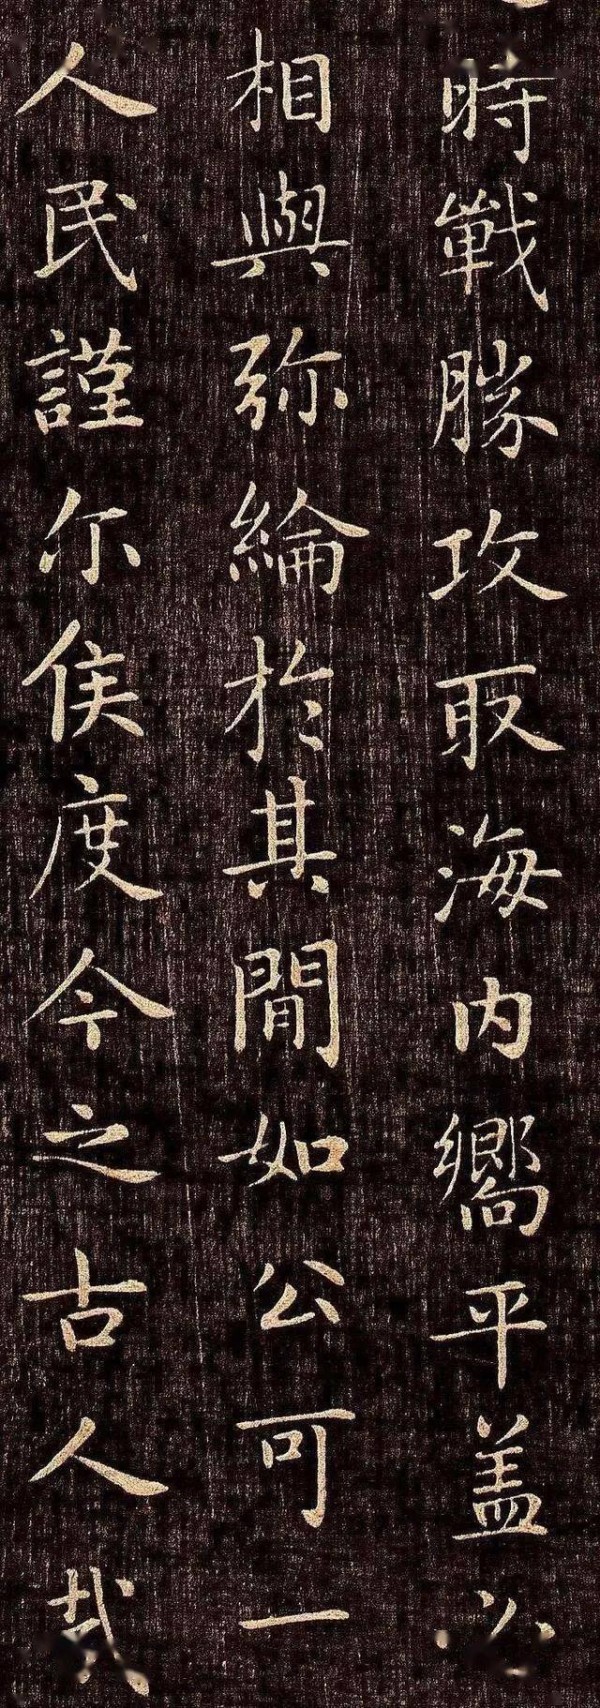 時戰勝攻取海内嚮平盖
相與弥綸於其閒如公可一
人民謹尔侯度今之古人哉